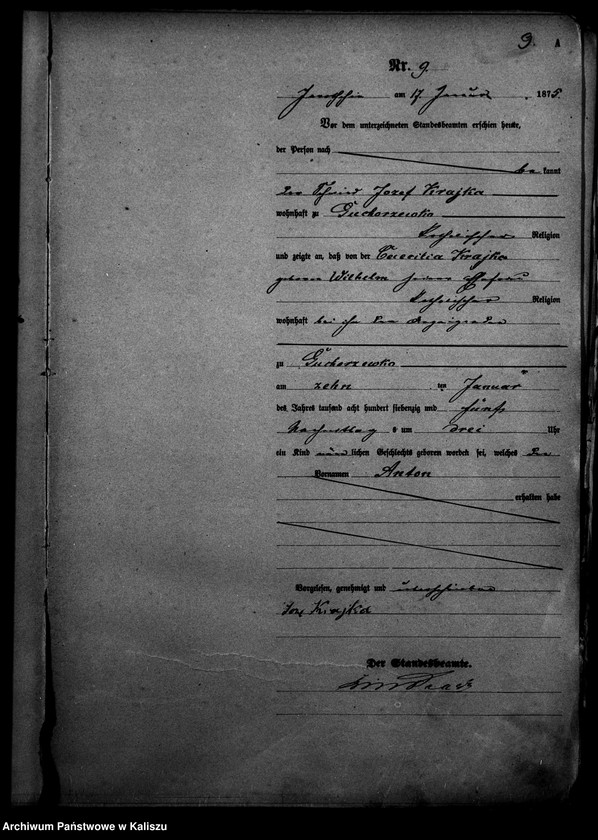 9. A
Nr. 9.
am 17. Januar 1875.
Vor dem unterzeichneten Standesbeamten erschien heute,
der Person nach
be kannt
der Schmied Jozef Krajka
wohnhaft zu Sucharzewko
katholischer Religion
und zeigte an, daß von der Caecilia Krajka
geborene Wilhelm seiner Ehefrau
katholischer Religion
wohnhaft bei ihm dem Anzeigenden
zu Sucharzewko
am zehn ten Januar
des Jahres tausend acht hundert siebenzig und fünf
Nachmittag s um drei Uhr
ein Kind männ lichen Geschlechts geboren worden sei, welches den
Vornamen Anton
erhalten habe
Vorgelesen, genehmigt und unterschrieben
Krajka
Der Standesbeamte.
Archiwum Państwowe w Kaliszu